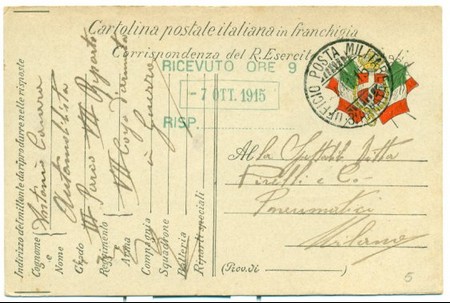 Cartolina postale italiana in franchigia
Corrispondenza del R. Esercito
RICEVUTO ORE 9
- 7 OTT. 1915
RISP.
UFFICIO POSTA MILITARE
Alla Spettabile Ditta
Pirelli e Co
Pneumatici
Milano
(Prov. di
5
Indirizzo del mittente da riprodurre nelle risposte
Cognome Antonio
e
Nome Automobilista
Corpo III Parco VII Riparto
Reggimento
Arma VII Corpo d'armata
Compagnia in guerra
Squadrone
Batteria
Riparti speciali